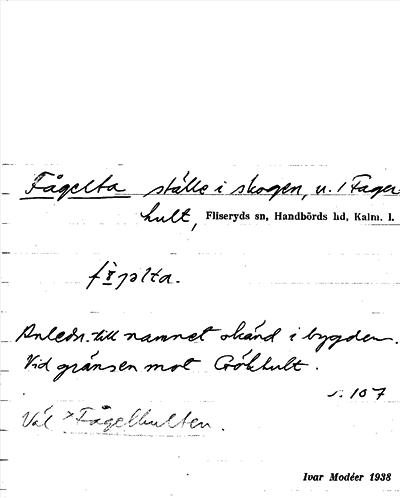 Fågelta ställe i skogen, u. / Fager
hult, Fliseryds sn, Handbörds hd, Kalm. l.
Anledn. till namnet okänd i bygden.
Vid gränsen mot Gökhult.
s. 107
Väl > Fågelhulten.
Ivar Modéer 1938